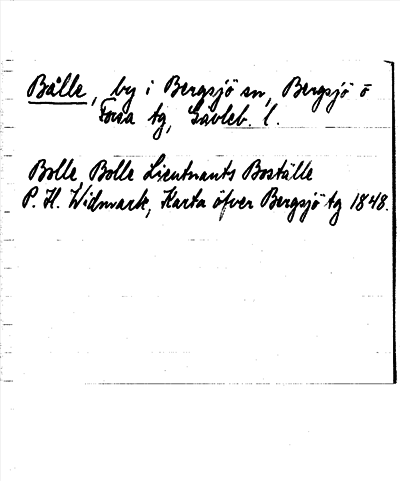 Bålle, by i Bergsjö sn, Bergsjö o
Forsa tg, Gävleb. l.
Bolle, Bolle Lieutnants Boställe
P. H. Widmark, Karta öfver Bergsjö tg 1848.